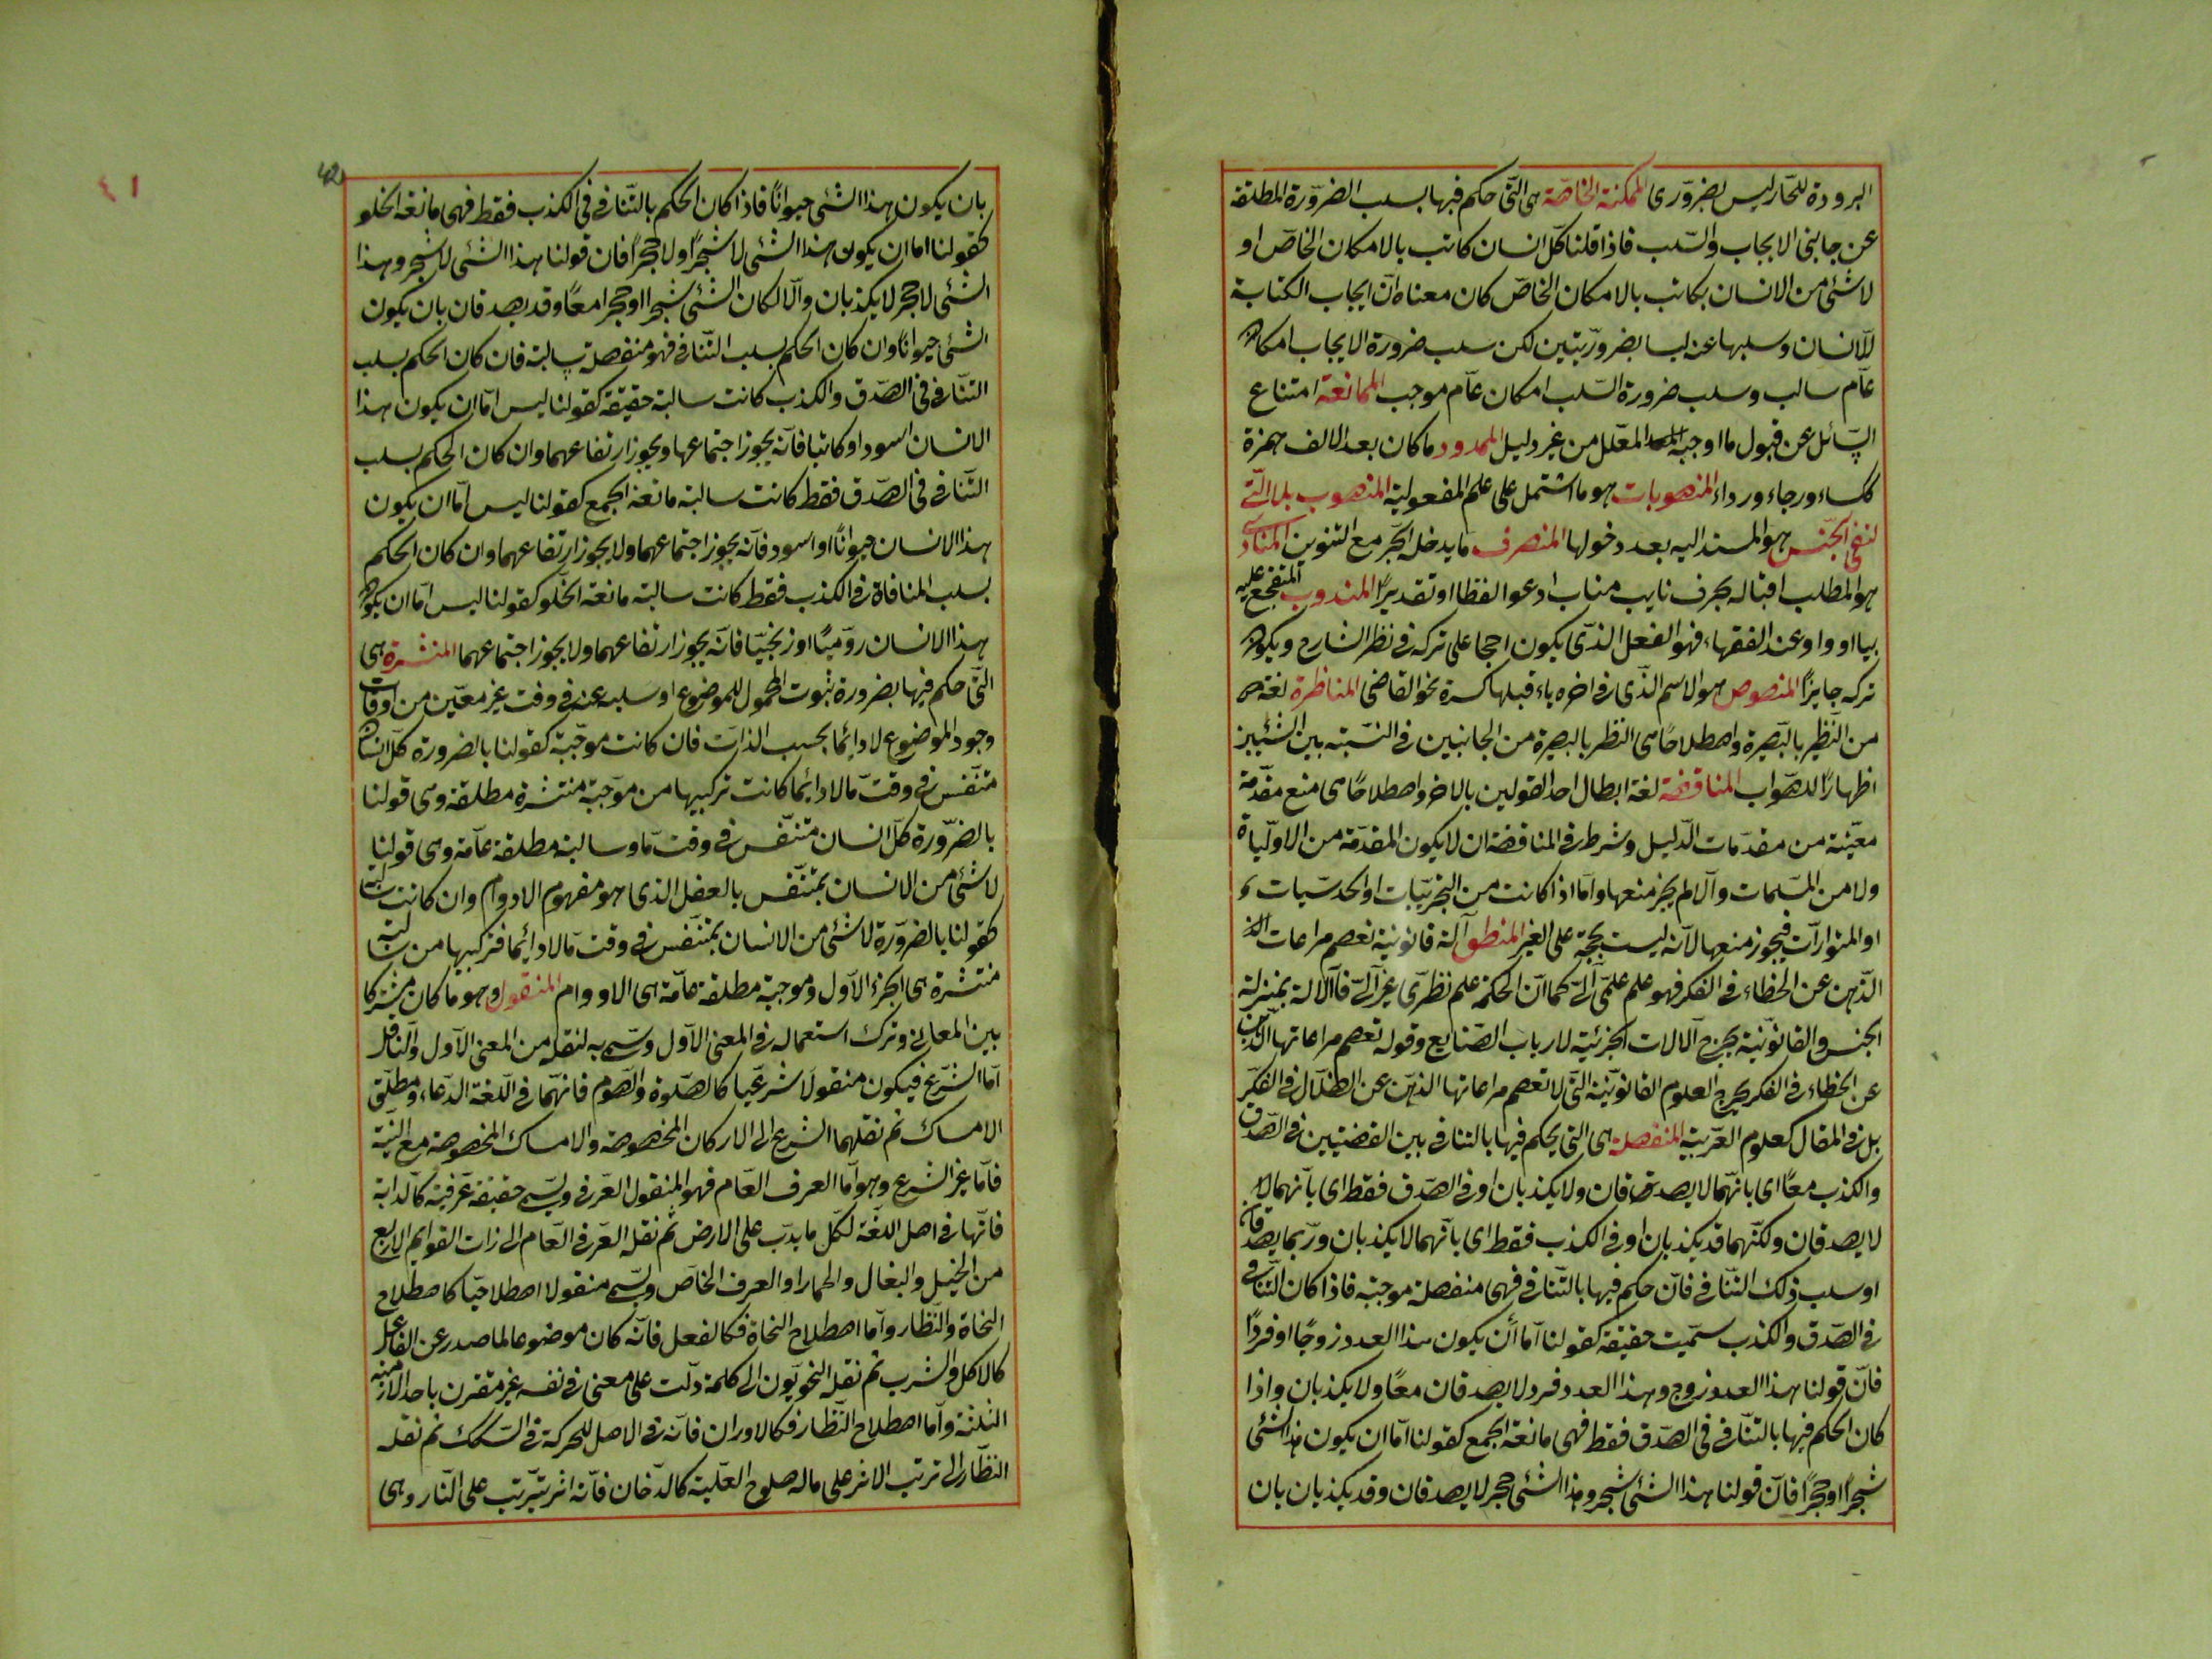 البرودة للحار ليس بضروری الممكنة الخاصة هی التی حكم فيها بسلب الضرورة المطلقة
عن جانبی الايجاب والسلب فاذا قلنا كل انسان كاتب بالامكان الخاص او
لا شئی من الانسان بكاتب بالامكان الخاص كان معناه ان ايجاب الكتابة
للانسان وسلبها عنه ليسا بضروريتين لكن سلب ضرورة الايجاب امكان
عام سالب وسلب ضرورة السلب امكان عام موجب الممانعة امتناع
السائل عن قبول ما اوجبه المعلل من غير دليل الممدود ما كان بعد الالف همزة
ككساء ورداء المنصوبات هو ما اشتمل علی علم المفعولية المنصوب بلا التی
لنفی الجنس هو المسند اليه بعد دخولها المنصرف ما يدخله الجر مع التنوين المنادی
هو المطلب اقباله بحرف نايب مناب ادعو لفظا او تقديرًا المندوب المتفجع عليه
بيا او وا وعند الفقهاء فهو الفعل الذی يكون راجحا علی تركه فی نظر الشارع ويكون
تركه جايزًا المنقوص هو الاسم الذی فی اخره ياء قبلها كسرة نحو القاضی المناظرة لغة
من النظير بالبصيرة واصطلاحًا هی النظر بالبصيرة من الجانبين فی النسبة بين الشيئين
اظهارًا للصواب المناقضة لغة ابطال احد القولين بالاخر واصطلاحًا هی منع مقدمة
معينة من مقدمات الدليل وشرط فی المناقضة ان لا يكون المقدمة من الاوليات
ولا من المسلمات والا لم يجز منعها واما اذا كانت من التجربيات او الحدسيات
او المتواترات فيجوز منعها لانه ليست بحجة علی الغير المنطق آلة قانونية تعصم مراعاتها
الذهن عن الخطاء فی الفكر فهو علم عملی آلی كما ان الحكمة علم نظری غير آلی فالآلة بمنزلة
الجنس والقانونية يخرج الآلات الجزئية لارباب الصنايع وقوله تعصم مراعاتها الذهن
عن الخطاء فی الفكر يخرج العلوم القانونية التی لا تعصم مراعاتها الذهن عن الضلال فی الفكر
بل فی المقال كعلوم العربية المنفصلة هی التی يحكم فيها بالتنافی بين القضيتين فی الصدق
والكذب معًا ای بانهما لا يصدقان ولا يكذبان او فی الصدق فقط ای بانهما
لا يصدقان ولكنهما قد يكذبان او فی الكذب فقط ای بانهما لا يكذبان وربما يصدقان
او سلب ذلك التنافی فان حكم فيها بالتنافی فهی منفصلة موجبة فاذا كان التنافی
فی الصدق والكذب سميت حقيقة كقولنا اما ان يكون هذا العدد زوجًا او فردًا
فان قولنا هذا العدد زوج وهذا العدد فرد لا يصدقان معًا ولا يكذبان واذا
كان الحكم فيها بالتنافی فی الصدق فقط فهی مانعة الجمع كقولنا اما ان يكون هذا الشئی
شجرًا او حجرًا فان قولنا هذا الشئی شجر وهذا الشئی حجر لا يصدقان وقد يكذبان بان
٤١
بان يكون هذا الشئی حيوانًا فاذا كان الحكم بالتنافی فی الكذب فقط فهی مانعة الخلو
كقولنا اما ان يكون هذا الشئی لا شجرًا ولا حجرًا فان قولنا هذا الشئی لا شجر وهذا
الشئی لا حجر لا يكذبان والا لكان الشئی شجرا وحجرا معًا وقد يصدقان بان يكون
الشئی حيوانًا وان كان الحكم بسلب التنافی فهو منفصلة سالبة فان كان الحكم بسلب
التنافی فی الصدق والكذب كانت سالبة حقيقة كقولنا ليس اما ان يكون هذا
الانسان اسود او كاتبا فانه يجوز اجتماعهما ويجوز ارتفاعهما وان كان الحكم بسلب
التنافی فی الصدق فقط كانت سالبة مانعة الجمع كقولنا ليس اما ان يكون
هذا الانسان حيوانًا او اسود فانه يجوز اجتماعهما ولا يجوز ارتفاعهما وان كان الحكم
بسلب المنافاة فی الكذب فقط كانت سالبة مانعة الخلو كقولنا ليس اما ان يكون
هذا الانسان روميًا او زنجيًا فانه يجوز ارتفاعهما ولا يجوز اجتماعهما المنتشرة هی
التی حكم فيها بضرورة ثبوت المحمول للموضوع او سلبه عنه فی وقت غير معين من اوقات
وجود الموضوع لا دايما بحسب الذات فان كانت موجبة كقولنا بالضرورة كل انسان
متنفس فی وقت ما لا دائما كانت تركيبها من موجبة منتشرة مطلقة وهی قولنا
بالضرورة كل انسان متنفس فی وقت ما وسالبة مطلقة عامة وهی قولنا
لا شئی من الانسان بمتنفس بالفعل الذی هو مفهوم الادوام وان كانت سالبة
كقولنا بالضرورة لا شئی من الانسان بمتنفس فی وقت ما لا دائما فتركيبها من سالبة
منتشرة هی الجزء الاول وموجبة مطلقة عامة هی الادوام المنقول وهو ما كان مشتركا
بين المعانی وترك استعماله فی المعنی الاول وسمی به لنقله من المعنی الاول والناقل
اما الشرع فيكون منقولا شرعيا كالصلوة والصوم فانهما فی اللغة الدعاء ومطلق
الامساك ثم نقلهما الشرع الی الاركان المخصوصة والامساك المخصوصة مع النية
فاما غير الشرع وهو اما العرف العام فهو المنقول العرفی ويسمی حقيقة عرفية كالدابة
فانها فی اصل اللغة لكل ما يدب علی الارض ثم نقله العرف العام الی ذات القوايم الاربع
من الخيل والبغال والحمار او العرف الخاص ويسمی منقولا اصطلاحيا كاصطلاح
النحاة والنظار واما اصطلاح النحاة فكالفعل فانه كان موضوعا لما صدر عن الفاعل
كالاكل والشرب ثم نقله النحويون الی كلمة دلت علی معنی فی نفسه غير مقترن باحد الازمنة
الثلثة واما اصطلاح النظار فكالدوران فانه فی الاصل للحركة فی السكك ثم نقله
النظار الی ترتب الاثر علی ماله صلوح العلية كالدخان فانه اثر يترتب علی النار وهی